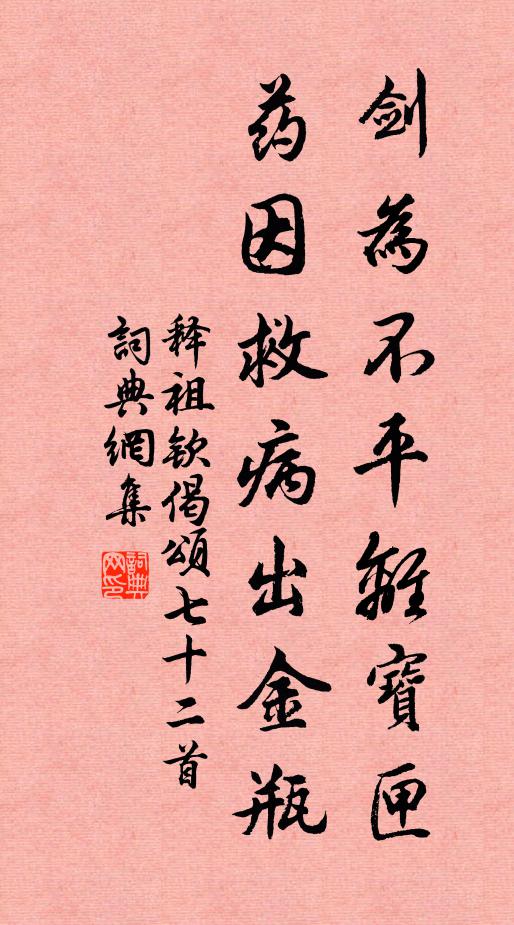 剑為不平離寶匣
药因救病出金瓶
释祖钦偈頌七十二首
詞典網集
詞典
网印